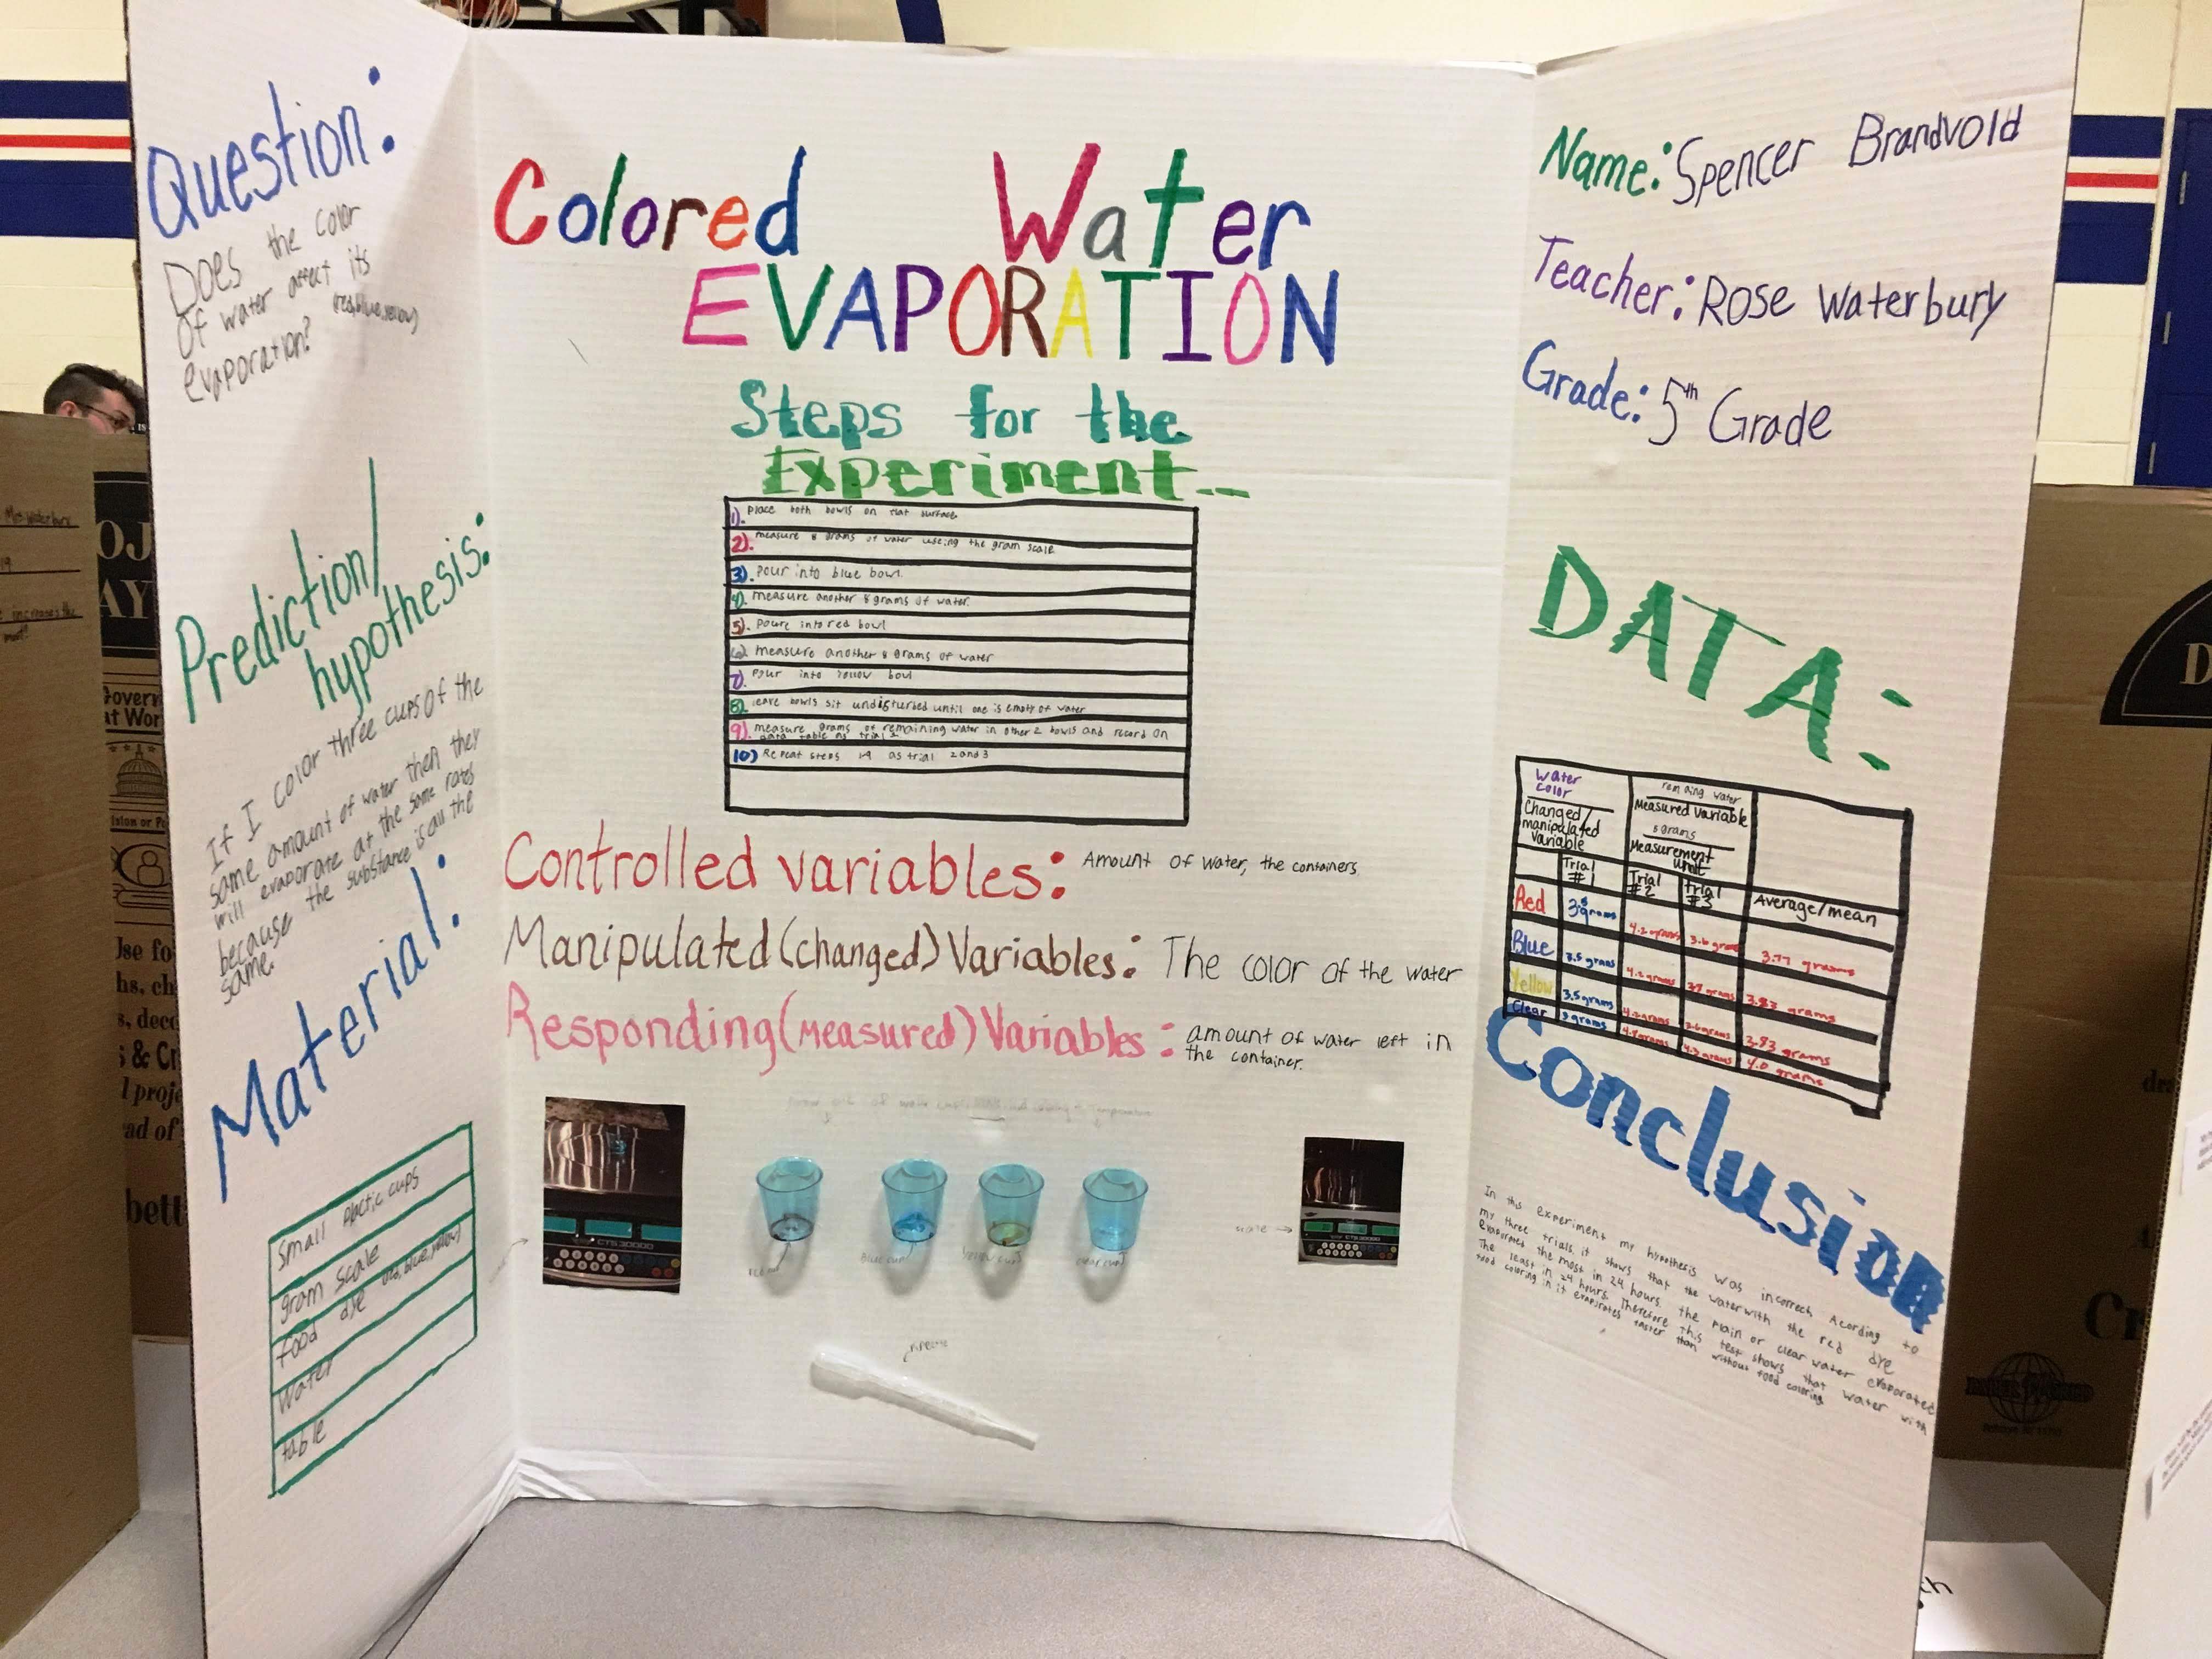 Question:
Does the color
of water affect its
(red,blue,yellow)
evaporation?
Prediction/
hypothesis:
If I color three cups of the
same amount of water then they
will evaporate at the same rates
because the substance is all the
same.
Material:
small plactic cups
gram scale
food dye (red,blue,yellow)
Water
table
Colored Water
EVAPORATION
Steps for the
Experiment...
1). Place both bowls on flat surface
2). measure 8 grams of water useing the gram scale
3). Pour into blue bowl.
4). measure another 8 grams of water.
5). Poure into red bowl
6). measure another 8 grams of water
7). Pour into yellow bowl
8). leave bowls sit undisturbed until one is empty of water
9). measure grams of remaining water in other 2 bowls and record on
data table as trial 1
10) Repeat steps 1-9 as trial 2 and 3
Controlled variables: Amount of water, the containers.
Manipulated (changed) Variables: The color of the water
Responding (Measured) Variables: amount of water left in
the container.
CTS 30000
red cup
Blue cup
clear cup
scale →
Name: Spencer Brandvold
Teacher: Rose Waterbury
Grade: 5th Grade
DATA:
Water color
Changed/ manipulated variable
remaing water
Measured variable
8 grams
Measurement unit
Trial #1 Trial #2 trial #3 Average/mean
Red 3.5 grams 4.2 grams 3.6 grams 3.77 grams
Blue 3.5 grams 4.2 grams 3.8 grams 3.83 grams
Yellow 3.5 grams 4.2 grams 3.83 grams
Clear 3 grams 4.3 grams 4.0 grams
Conclusion
In this experiment my hypothesis was incorrect. Acording to
my three trials, it shows that the water with the red dye
evaporated the most in 24 hours. the plain or clear water evaporated
The least in 24 hours. Therefore this test shows that water with
food coloring in it evaporates faster than without food coloring.
Mrs. Waterbury
increases the